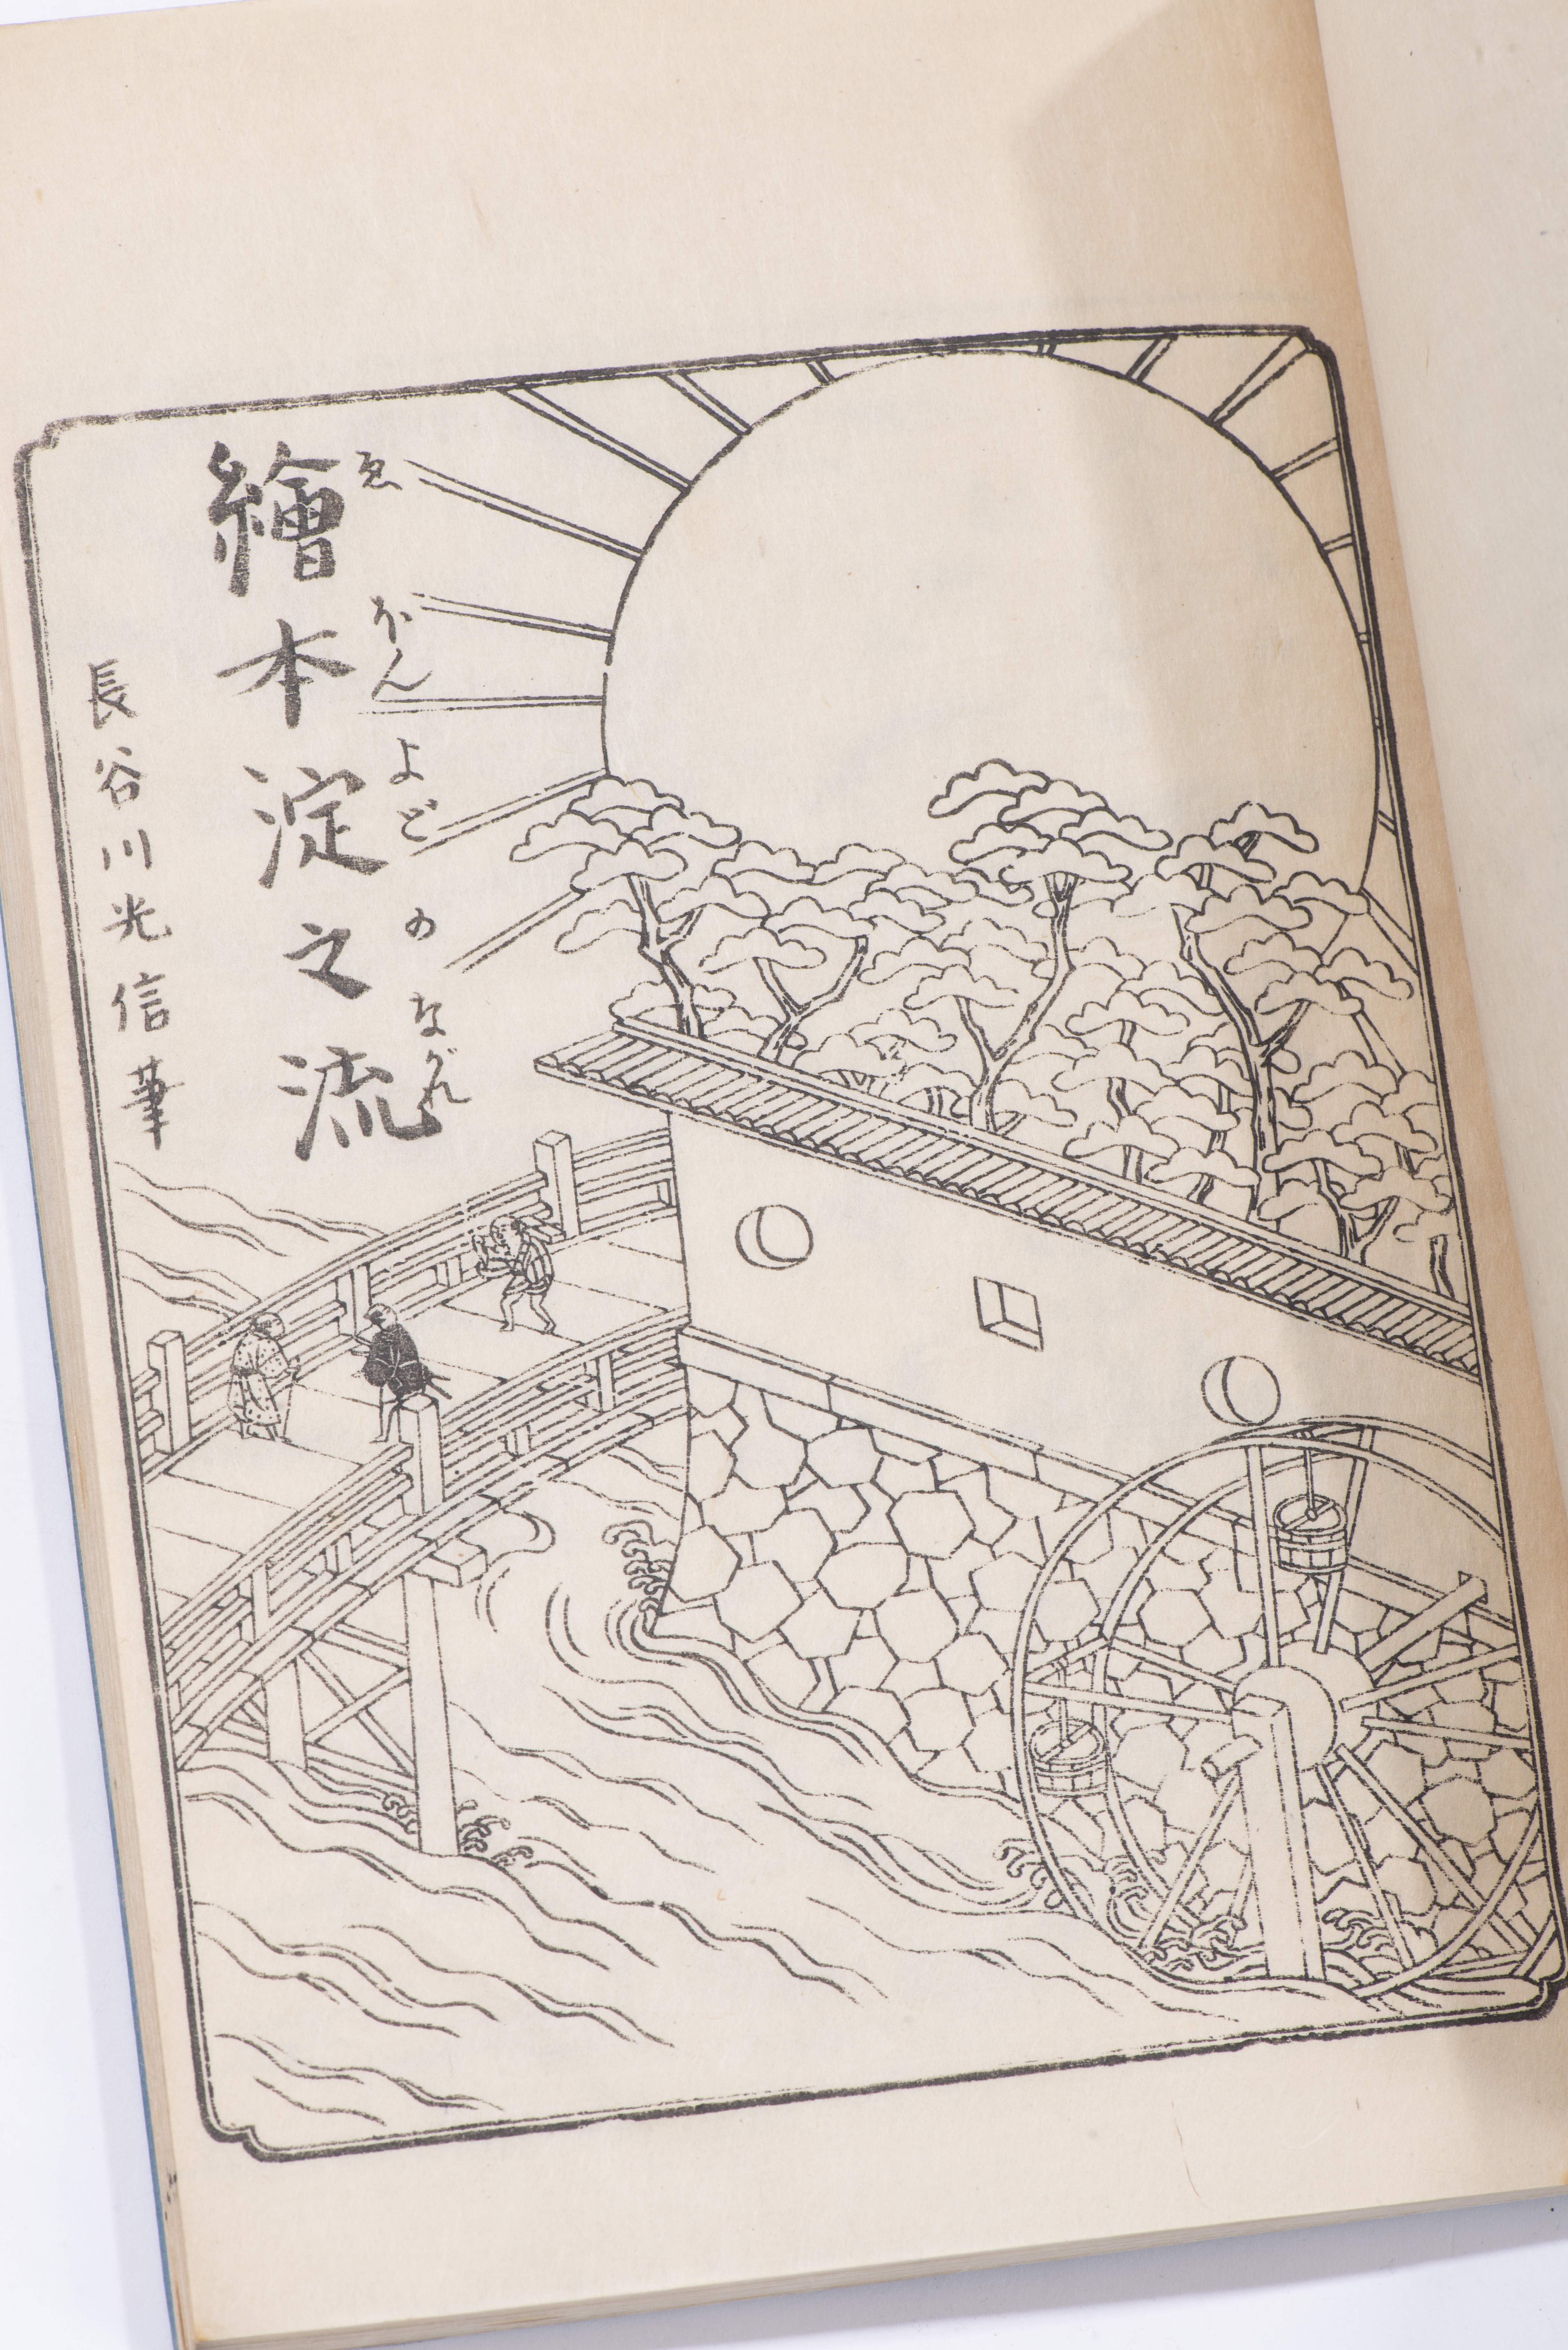 ゑほんよどのながれ
繪本淀之流
長谷川光信筆